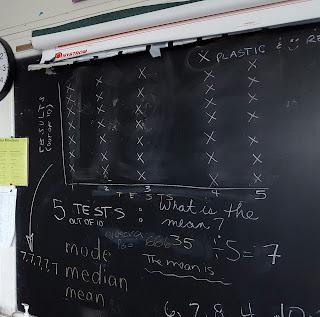 NYSTROM
X PLASTIC & RE
RESULTS
(OUT OF 10)
1 2 3 4 5
TESTS
5 TESTS : What is the
OUT OF 10 mean?
35 ÷ 5 = 7
mode
7,7,7,7,7 median
mean
The mean is
6, 7, 8, 4, 10